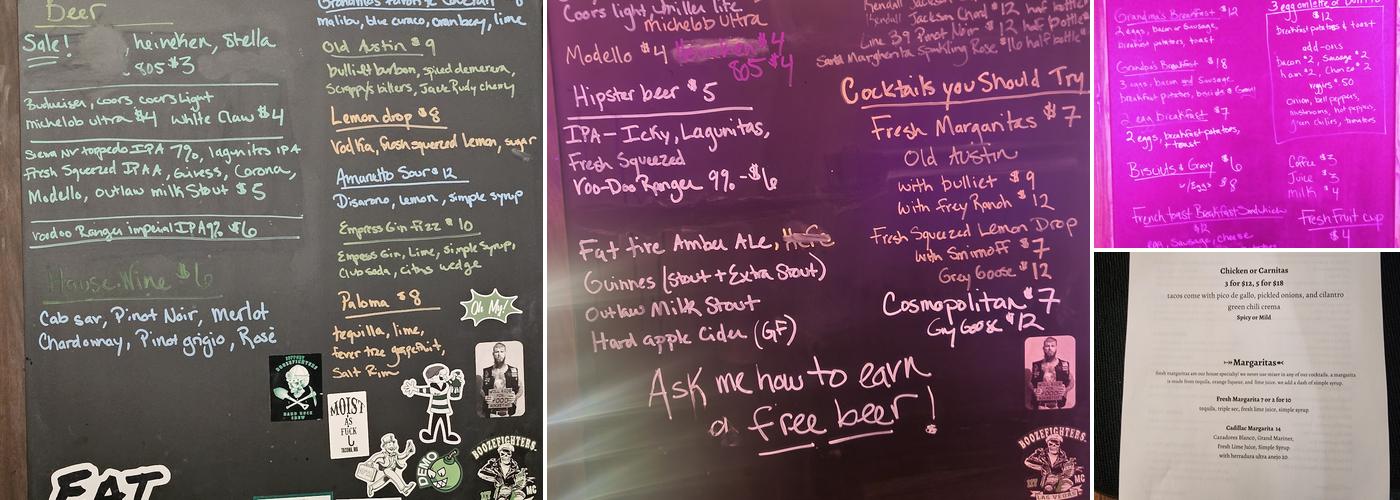 Beer
Sale!
, heineken, Stella
805 $3
Budweiser, coors, coors Light
michelob ultra $4 White Claw $4
Sierra Nv torpedo IPA 7%, lagunitas IPA
Fresh Squeezed IPAA, Guiness, Corona,
Modello, outlaw milk Stout $5
voodoo Ranger imperial IPA 9% $6
House Wine $6
Cab sav, Pinot Noir, Merlot
Chardonnay, Pinot grigio, Rosè
malibu, blue curaco, cranberry, lime
Old Austin $9
bulliet burbon, spiced demerera,
Scrappy's bitters, Jack Rudy cherry
Lemon drop $8
Vodkia, fresh squeezed lemon, sugar
Amaretto Sour $12
Disarono, lemon, simple syrup
Empress Gin Fizz $10
Empress Gin, Lime, Simple Syrup,
Club soda, citrus wedge
Paloma $8
tequilla, lime,
fever tree grapefruit,
Salt Rim
Oh My!
SUPPORT
BOOZEFIGHTERS
HARD ROCK
CREW
MOIST
AS
FUCK
TACOMA, WA
DEMO
BOOZEFIGHTERS
MC
EAT
Coors light, miller lite
michelob ultra
Modello $4
$4
805 $4
Hipster beer $5
IPA - Icky, Lagunitas,
Fresh Squeezed
Voo-Doo Ranger 9% - $6
Fat tire Amber ALe,
Guinnes (Stout + Extra Stout)
Outlaw Milk Stout
Hard apple Cider (GF)
Ask me how to earn
a free beer!
Kendall Jackson Chard $12 half bottle
Line 39 Pinot Noir $12 half bottle
Santa Margherita Sparkling Rose, $16 half bottle
Cocktails you Should Try
Fresh Margaritas $7
Old Austin
with bulliet $9
with Frey Ranch $12
Fresh Squeezed Lemon Drop
with Smirnoff $7
Grey Goose $12
Cosmopolitan $7
Gry Goose $12
BOOZEFIGHTERS
MC
LAS VEGAS
Grandma's Breakfast $12
2 eggs, bacon or Sausage,
breakfast potatoes, toast
Grandpa's Breakfast $18
3 eggs, bacon and Sausage
breakfast potatoes, biscuits & Gravy
2 egg breakfast $7
2 eggs, breakfast potatoes,
toast
Biscuits & Gravy $6
w/Eggs $8
French toast Breakfast Sandwich
$12
egg, Sausage, cheese
3 egg omlette or
$12
breakfast potatoes & toast
add-ons
bacon $2, Sausage $2
ham $2, Chorizo $2
veggies $.50
Onion, bell peppers,
mushrooms, hot peppers,
green chilies, tomatoes
Coffee $3
Juice $3
milk $4
Fresh fruit cup
$4
Chicken or Carnitas
3 for $12, 5 for $18
tacos come with pico de gallo, pickled onions, and cilantro
green chili crema
Spicy or Mild
Margaritas
fresh margaritas are our house specialty! we never use mixer in any of our cocktails. a margarita
is made from tequila, orange liqueur, and lime juice. we add a dash of simple syrup.
Fresh Margarita 7 or 2 for 10
tequila, triple sec, fresh lime juice, simple syrup
Cadillac Margarita 14
Cazadores Blanco, Grand Mariner,
Fresh Lime Juice, Simple Syrup
with herradura ultra anejo 20